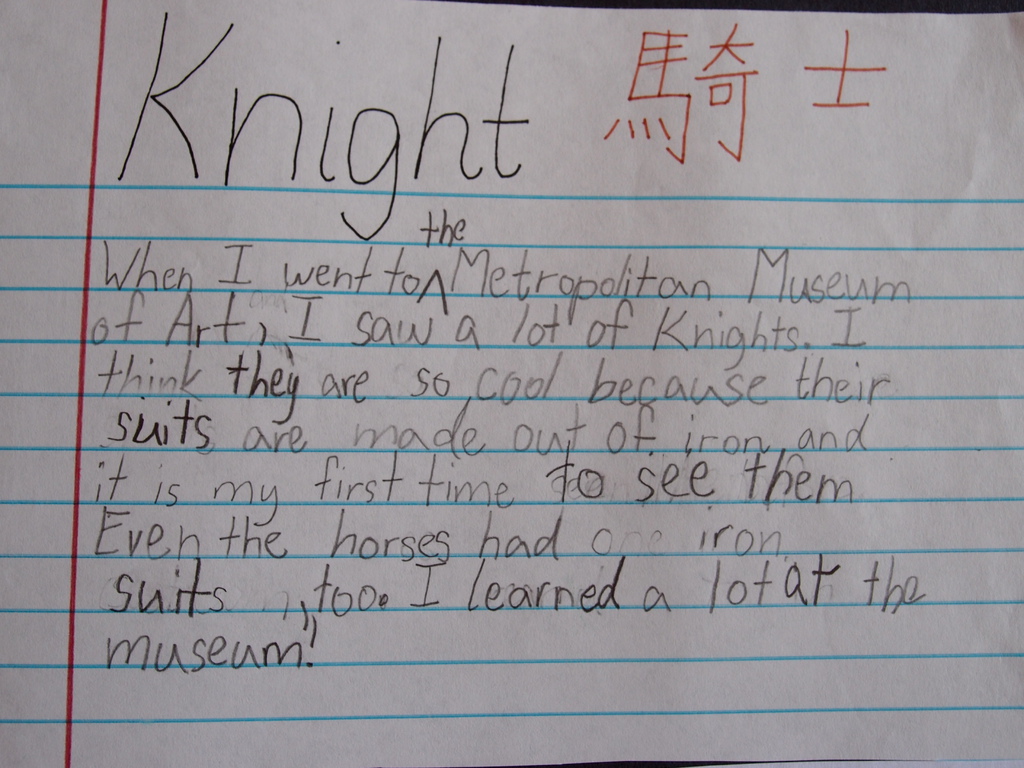 Knight 騎士
the
When I went to ^ Metropolitan Museum
of Art, I saw a lot of Knights. I
think they are so cool because their
suits are made out of iron and
it is my first time to see them
Even the horses had iron
suits, too. I learned a lot at the
museum!